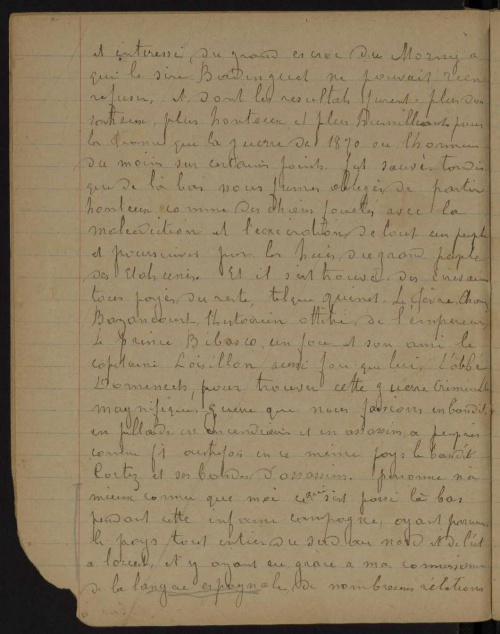 et intéressé, du grand escroc du Morny a
qui le sire Badinguet ne pouvait rien
refuser, et dont les resultats furent plus
honteux, plus honteux et plus humiliants pour
la France que la guerre de 1870 ou l'honneur
du moins sur certains points fut sauvé tandis
que de là bas nous fumes obligés de partir
honteux comme des chiens fouettés avec la
malediction et l'execration de tout un peuple
et poursuivis par les huées du grand peuple
des Etats unis. Et il s'est trouvé des
tous payés du reste, tel que
Bazancourt, l'historien attitré de l'empereur,
Le Prince Bibesco, un fou et son ami le
capitaine Loisillon aussi fou que lui, l'abbé
Domenech, pour trouver cette guerre criminelle
magnifique, guerre que nous fascons en bandits
en pillards en incendiaires et en assassins a peu près
comme fit autrefois en ce meme pays le bandit
Cortez et ses bandes d'assassins. personne n'a
mieux connu que moi ce qui s'est passé là bas
pendant cette infame campagne, ayant parcouru
le pays tout entier du sud au nord et de l'est
a l'ouest, et y ayant eu grace a ma connaissance
de la langue espagnole, de nombreuses relations